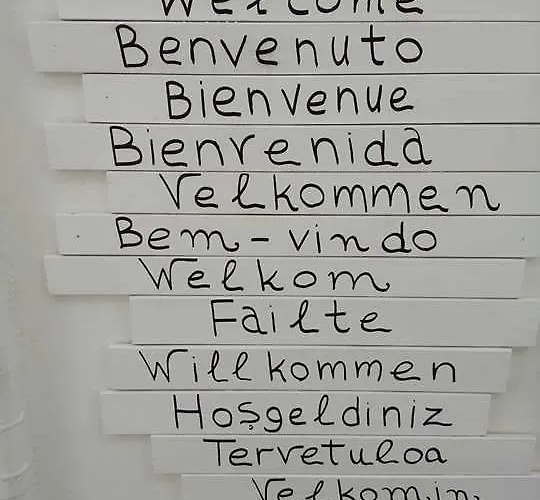 Welcome
Benvenuto
Bienvenue
Bienvenida
Velkommen
Bem-vindo
Welkom
Failte
Willkommen
Hoşgeldiniz
Tervetuloa
Velkomin